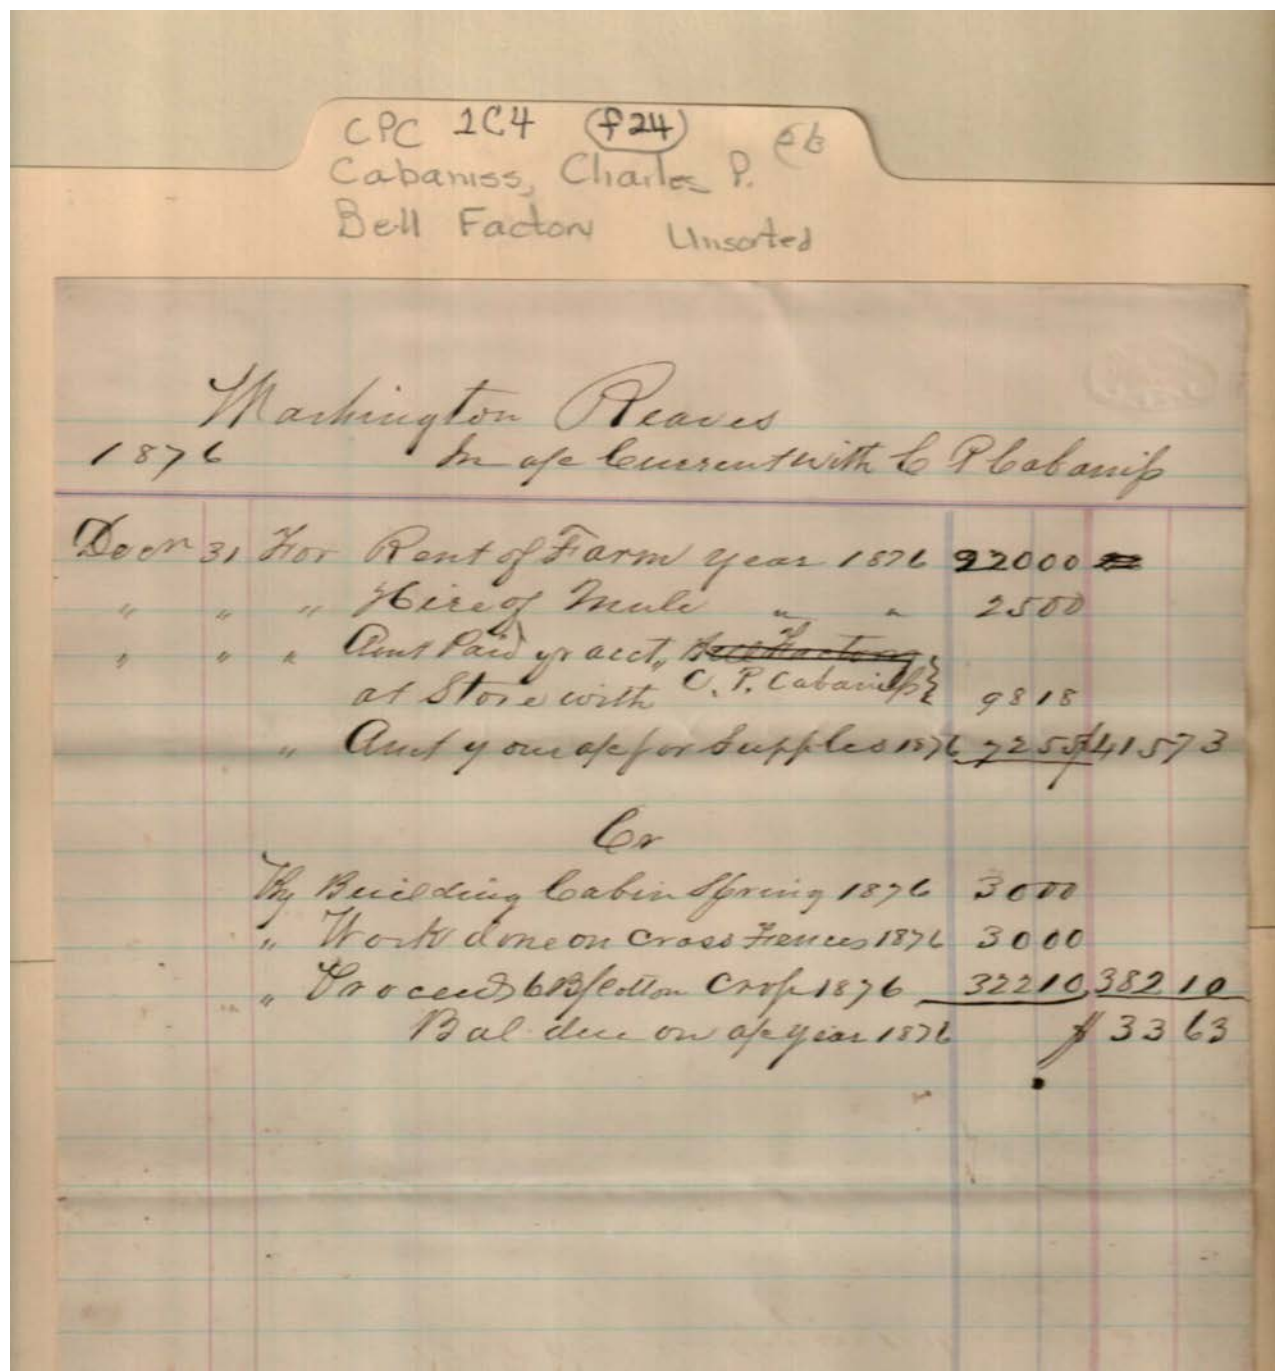 CPC 1C4 f24
Cabaniss, Charles P.
Bell Factory Unsorted
Washington Reaves
1876 In a/c Current with C P Cabaniss
Decr 31 For Rent of Farm year 1876 22000
" " " Hire of Mule " " 2500
" " " Amt Paid yr acct, Bell Factory
at Store with C. P. Cabaniss 9818
" Amt your a/c for Supples 1876 7255 $41573
Cr
By Building Cabin Spring 1876 3000
" Work done on Cross Fences 1876 3000
" Proceeds 6 B/Cotton Crop 1876 32210 38210
Bal due on a/c year 1876 $ 3363